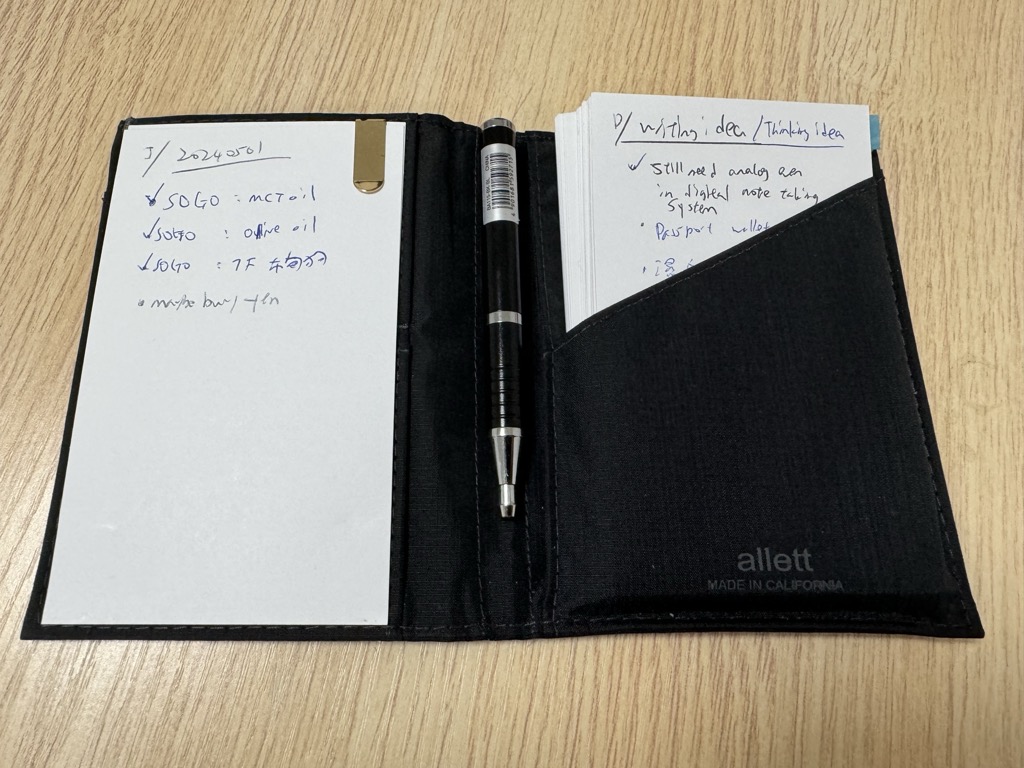 J/ 20240501
✓ SOGO : MCT oil
✓ SOGO : olive oil
✓ SOGO : 7F
• maybe buy
D/ writing idea / Thinking idea
✓ Still need analog
in digital note taking
System
• Passport wallet
CHINA
allett
MADE IN CALIFORNIA